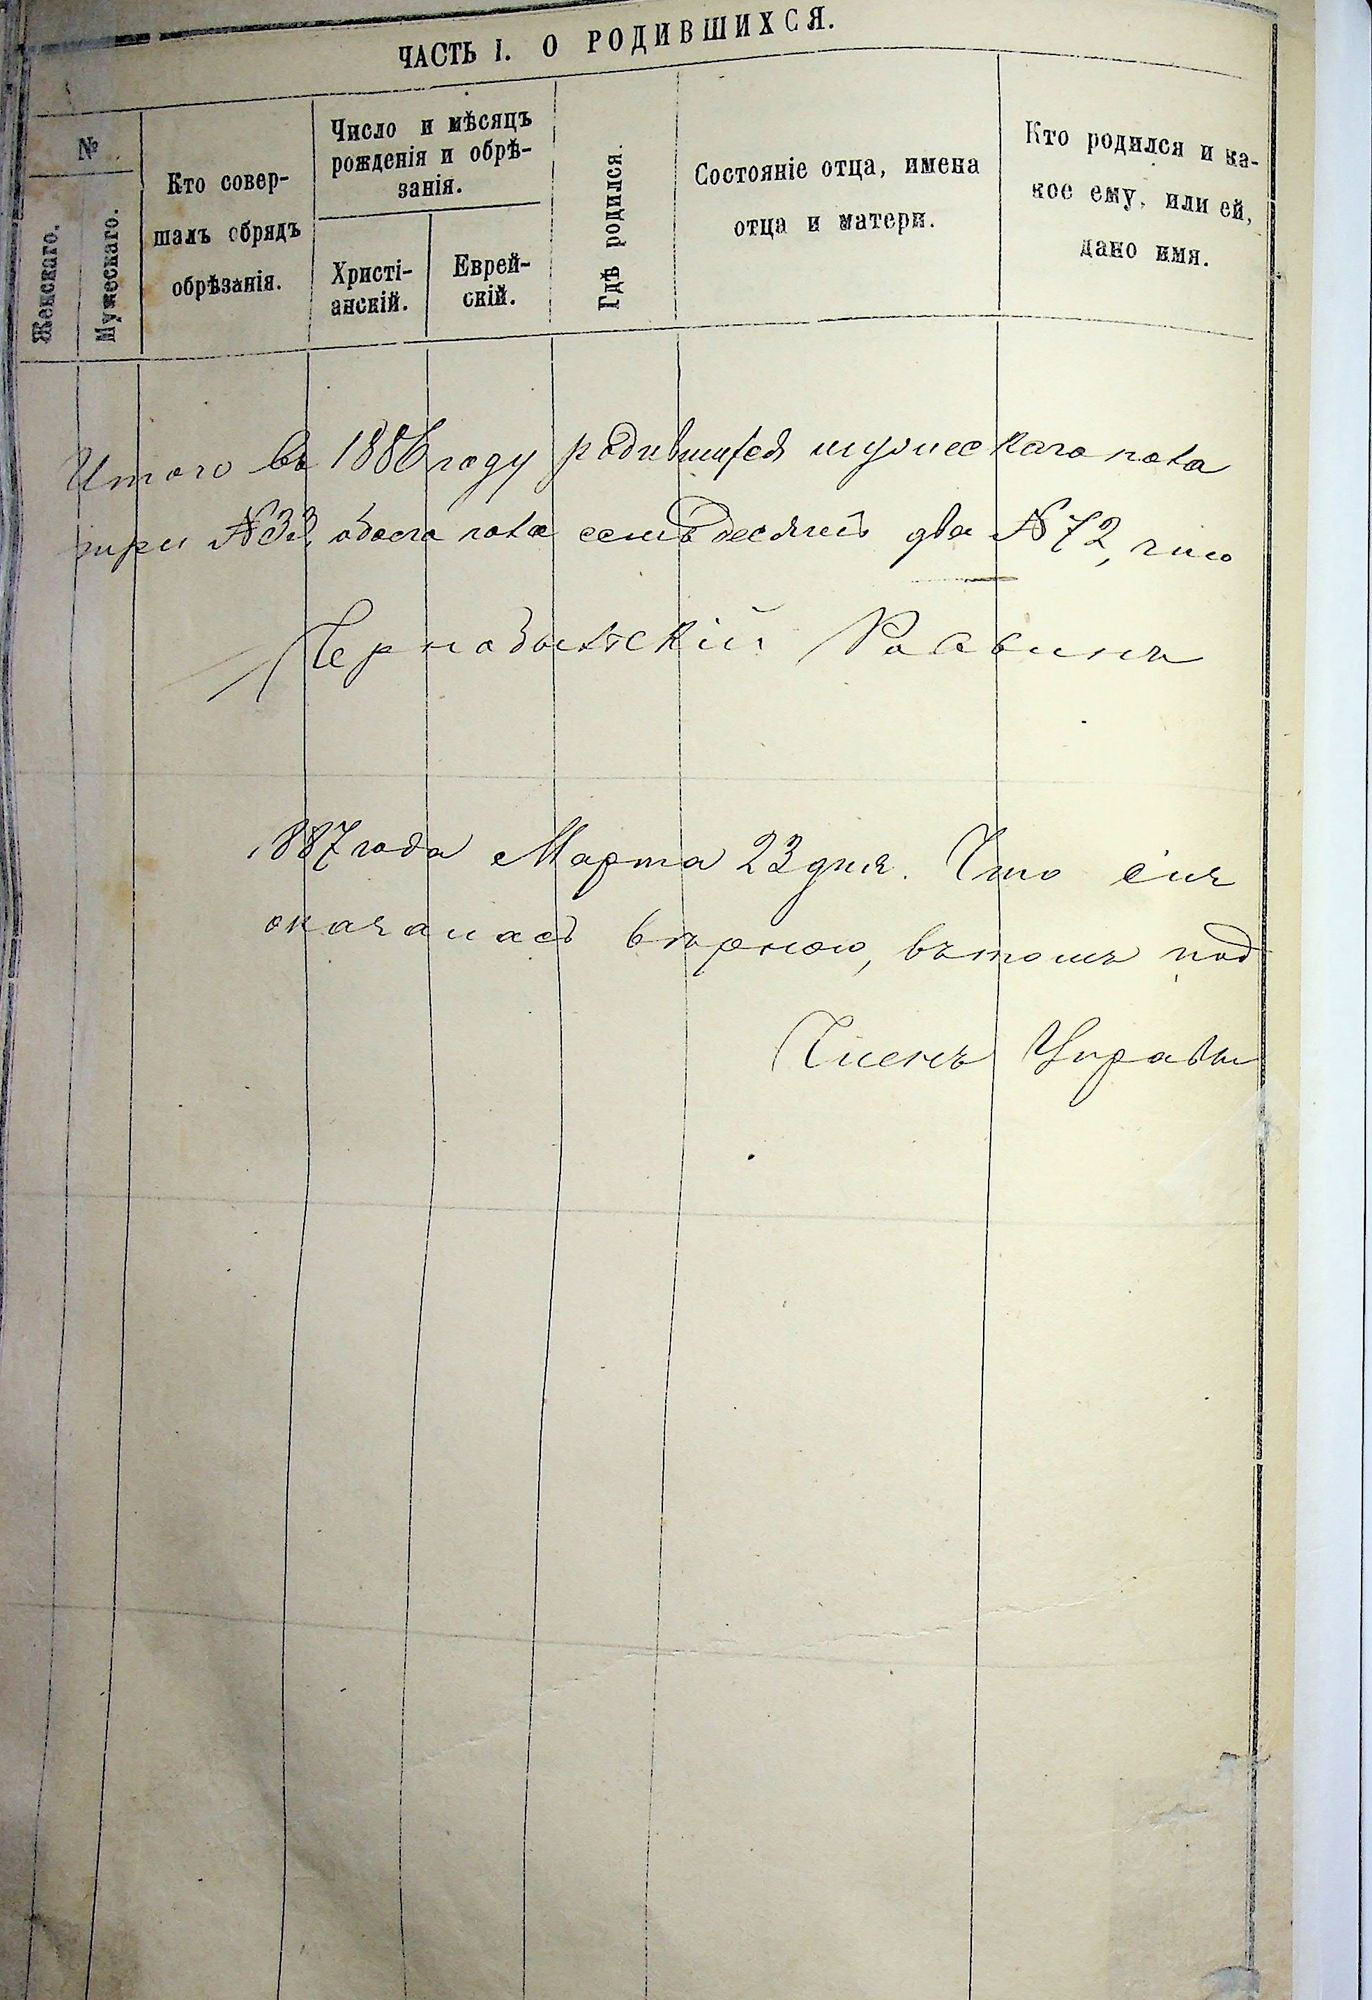 ЧАСТЬ I. О РОДИВШИХСЯ.
№
Женскаго.
Мужескаго.
Кто совер-
шалъ обрядъ
обрѣзанія.
Число и мѣсяцъ
рожденія и обрѣ-
занія.
Христі-
анскій.
Еврей-
скій.
Гдѣ родился.
Состояніе отца, имена
отца и матери.
Кто родился и ка-
кое ему, или ей,
дано имя.
Итого въ 1886 году родившихся мужескаго пола
три №33, обоего пола семьдесятъ два №72,
Чернобыльскій Раввинъ
1887 года Марта 23 дня. Что сія
оказалась вѣрною, въ томъ под
Членъ Управы